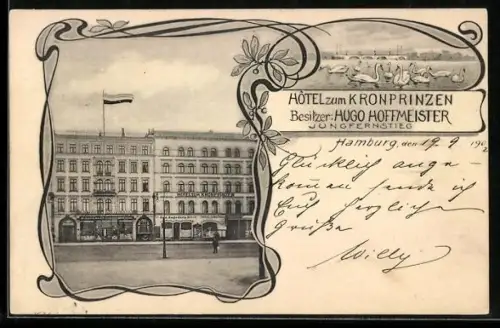 HÔTEL zum KRONPRINZEN
Besitzer: HUGO HOFFMEISTER
JUNGFERNSTIEG
Hamburg, den 19. 9 190
Glücklich ange-
kommen sende ich
Euch herzliche
Grüße
Willy